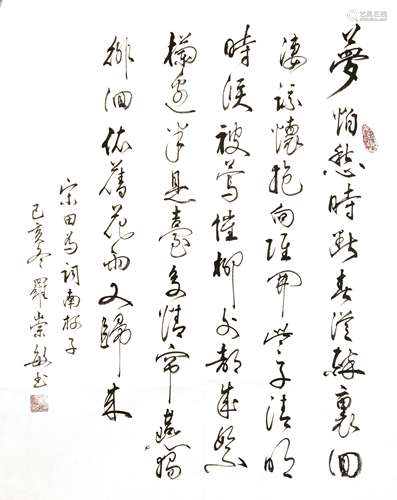 夢怕愁時斷春從醉裏回
淒涼懷抱向誰開些子清明
時候被莺催柳外都成絮
欄邊半是臺多情帘燕獨
徘徊依舊花雨又歸来
宋田為詞南柯子
己亥冬羅崇敏书